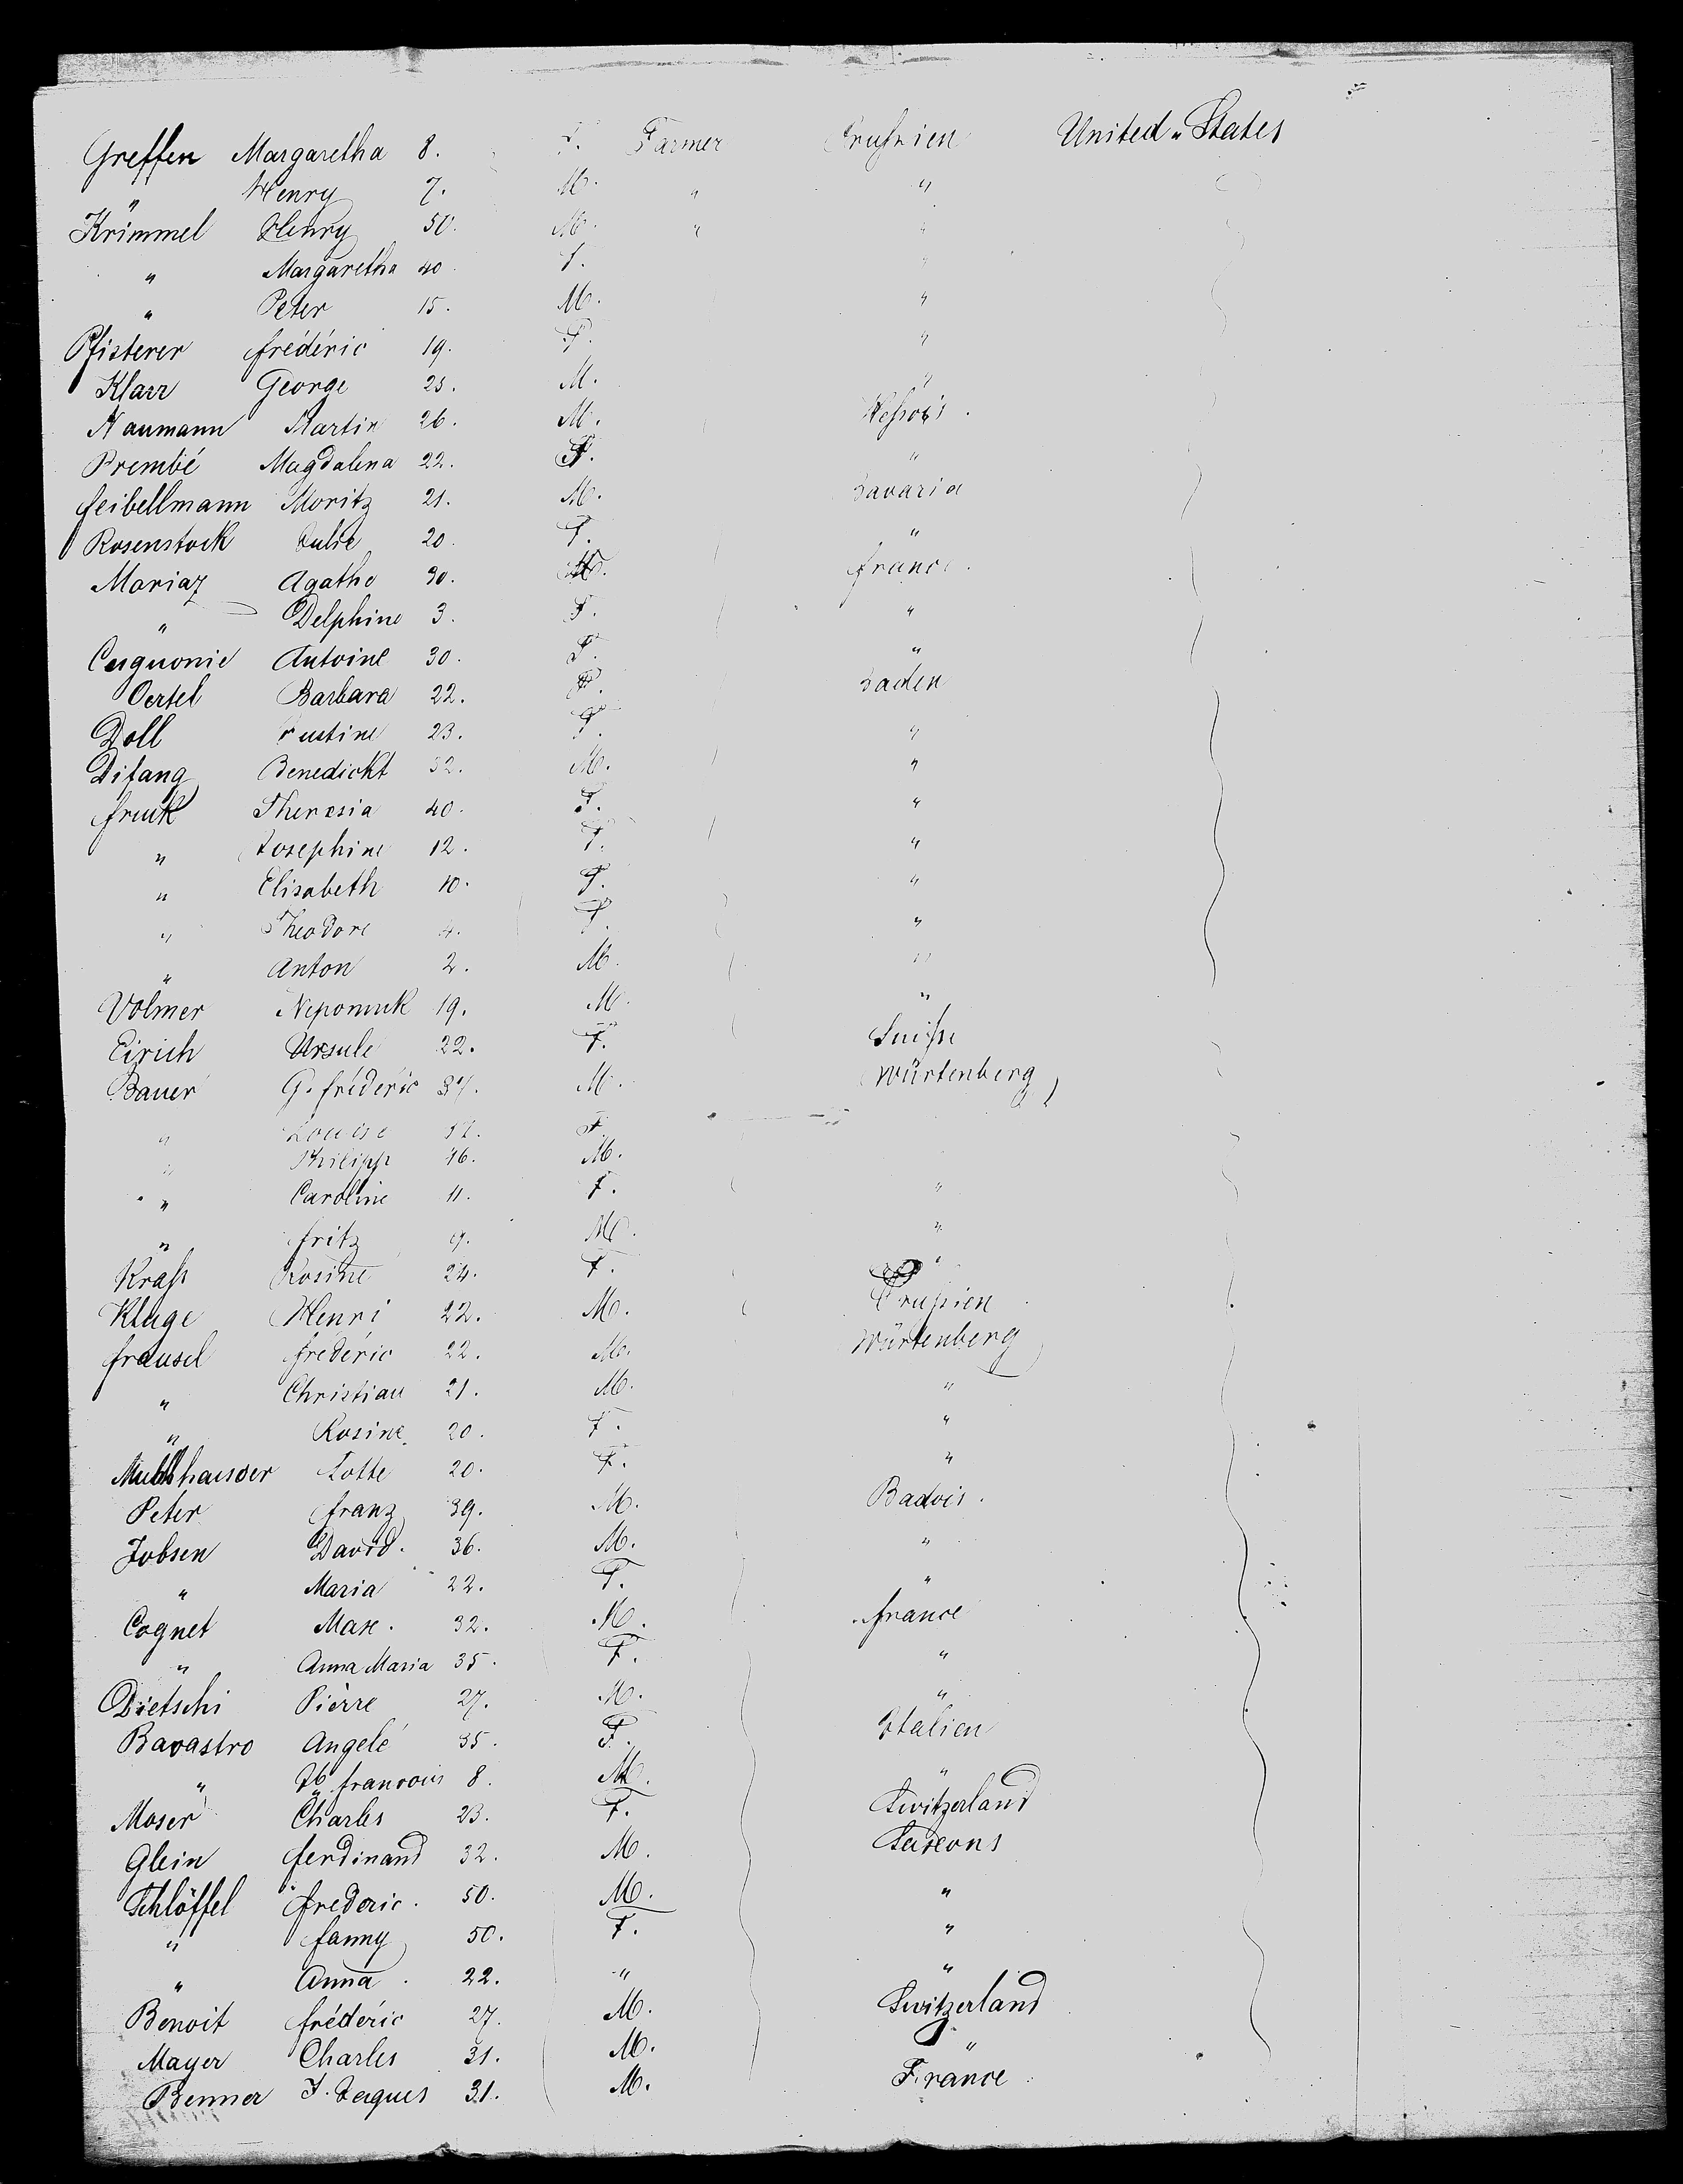 Greffen Margaretha 8. F. Farmer Prussien United States
" Henry 7. M. " "
Krimmel Henry 50. M. " "
" Margaretha 40. F. "
" Peter 15. M. "
Pfisterer frédéric 19. F. "
Klarr George 25. M. "
Naumann Martin 26. M. Hessois.
Brembé Magdalena 22. F. "
feibellmann Moritz 21. M. Bavaria
Rosenstock Julie 20. F. "
Moriaz Agathe 30. france.
" Delphine 3. F. "
Cuguonie Antoine 30. F. "
Oertel Barbara 22. F. Baden
Doll Justine 23. F. "
Difang Benedickt 32. M. "
fruik Theresia 40. F. "
" Josephine 12. F. "
" Elisabeth 10. F. "
" Theodore 4. F. "
" Anton 2. M. "
Völmer Nepomuk 19. M. "
Eirich Ursule 22. F. Suisse
Bauer G. fréderic 37. M. Würtenberg
" Louise F.
" Philipp 16. M.
" Caroline 11. F. "
" fritz 9. M. "
Krass Rosine 24. F. "
Kluge Henri 22. M. Prussien
frausel frederic 22. M. Würtenberg
" Christian 21. M. "
" Rosine 20. F. "
Muhlhauser Lotte 20. F. "
Peter franz 39. M. Badois.
Jobsen David. 36. M. "
" Maria 22. F. "
Cognet Max. 32. M. france
" Anna Maria 35. F. "
Dietschi Piérre 27. M. "
Bavastro Angelé 35. F. Italien
" Jb. francois 8. M. "
Moser Charles 23. F. Switzerland
Glein ferdinand 32. M. Saxons
Schlöffel frederic. 50. M. "
" fanny 50. F. "
" Anna. 22. " "
Benoit frédéric 27. M. Switzerland
Mayer Charles 31. M. "
Benner J. Jaques 31. M. France